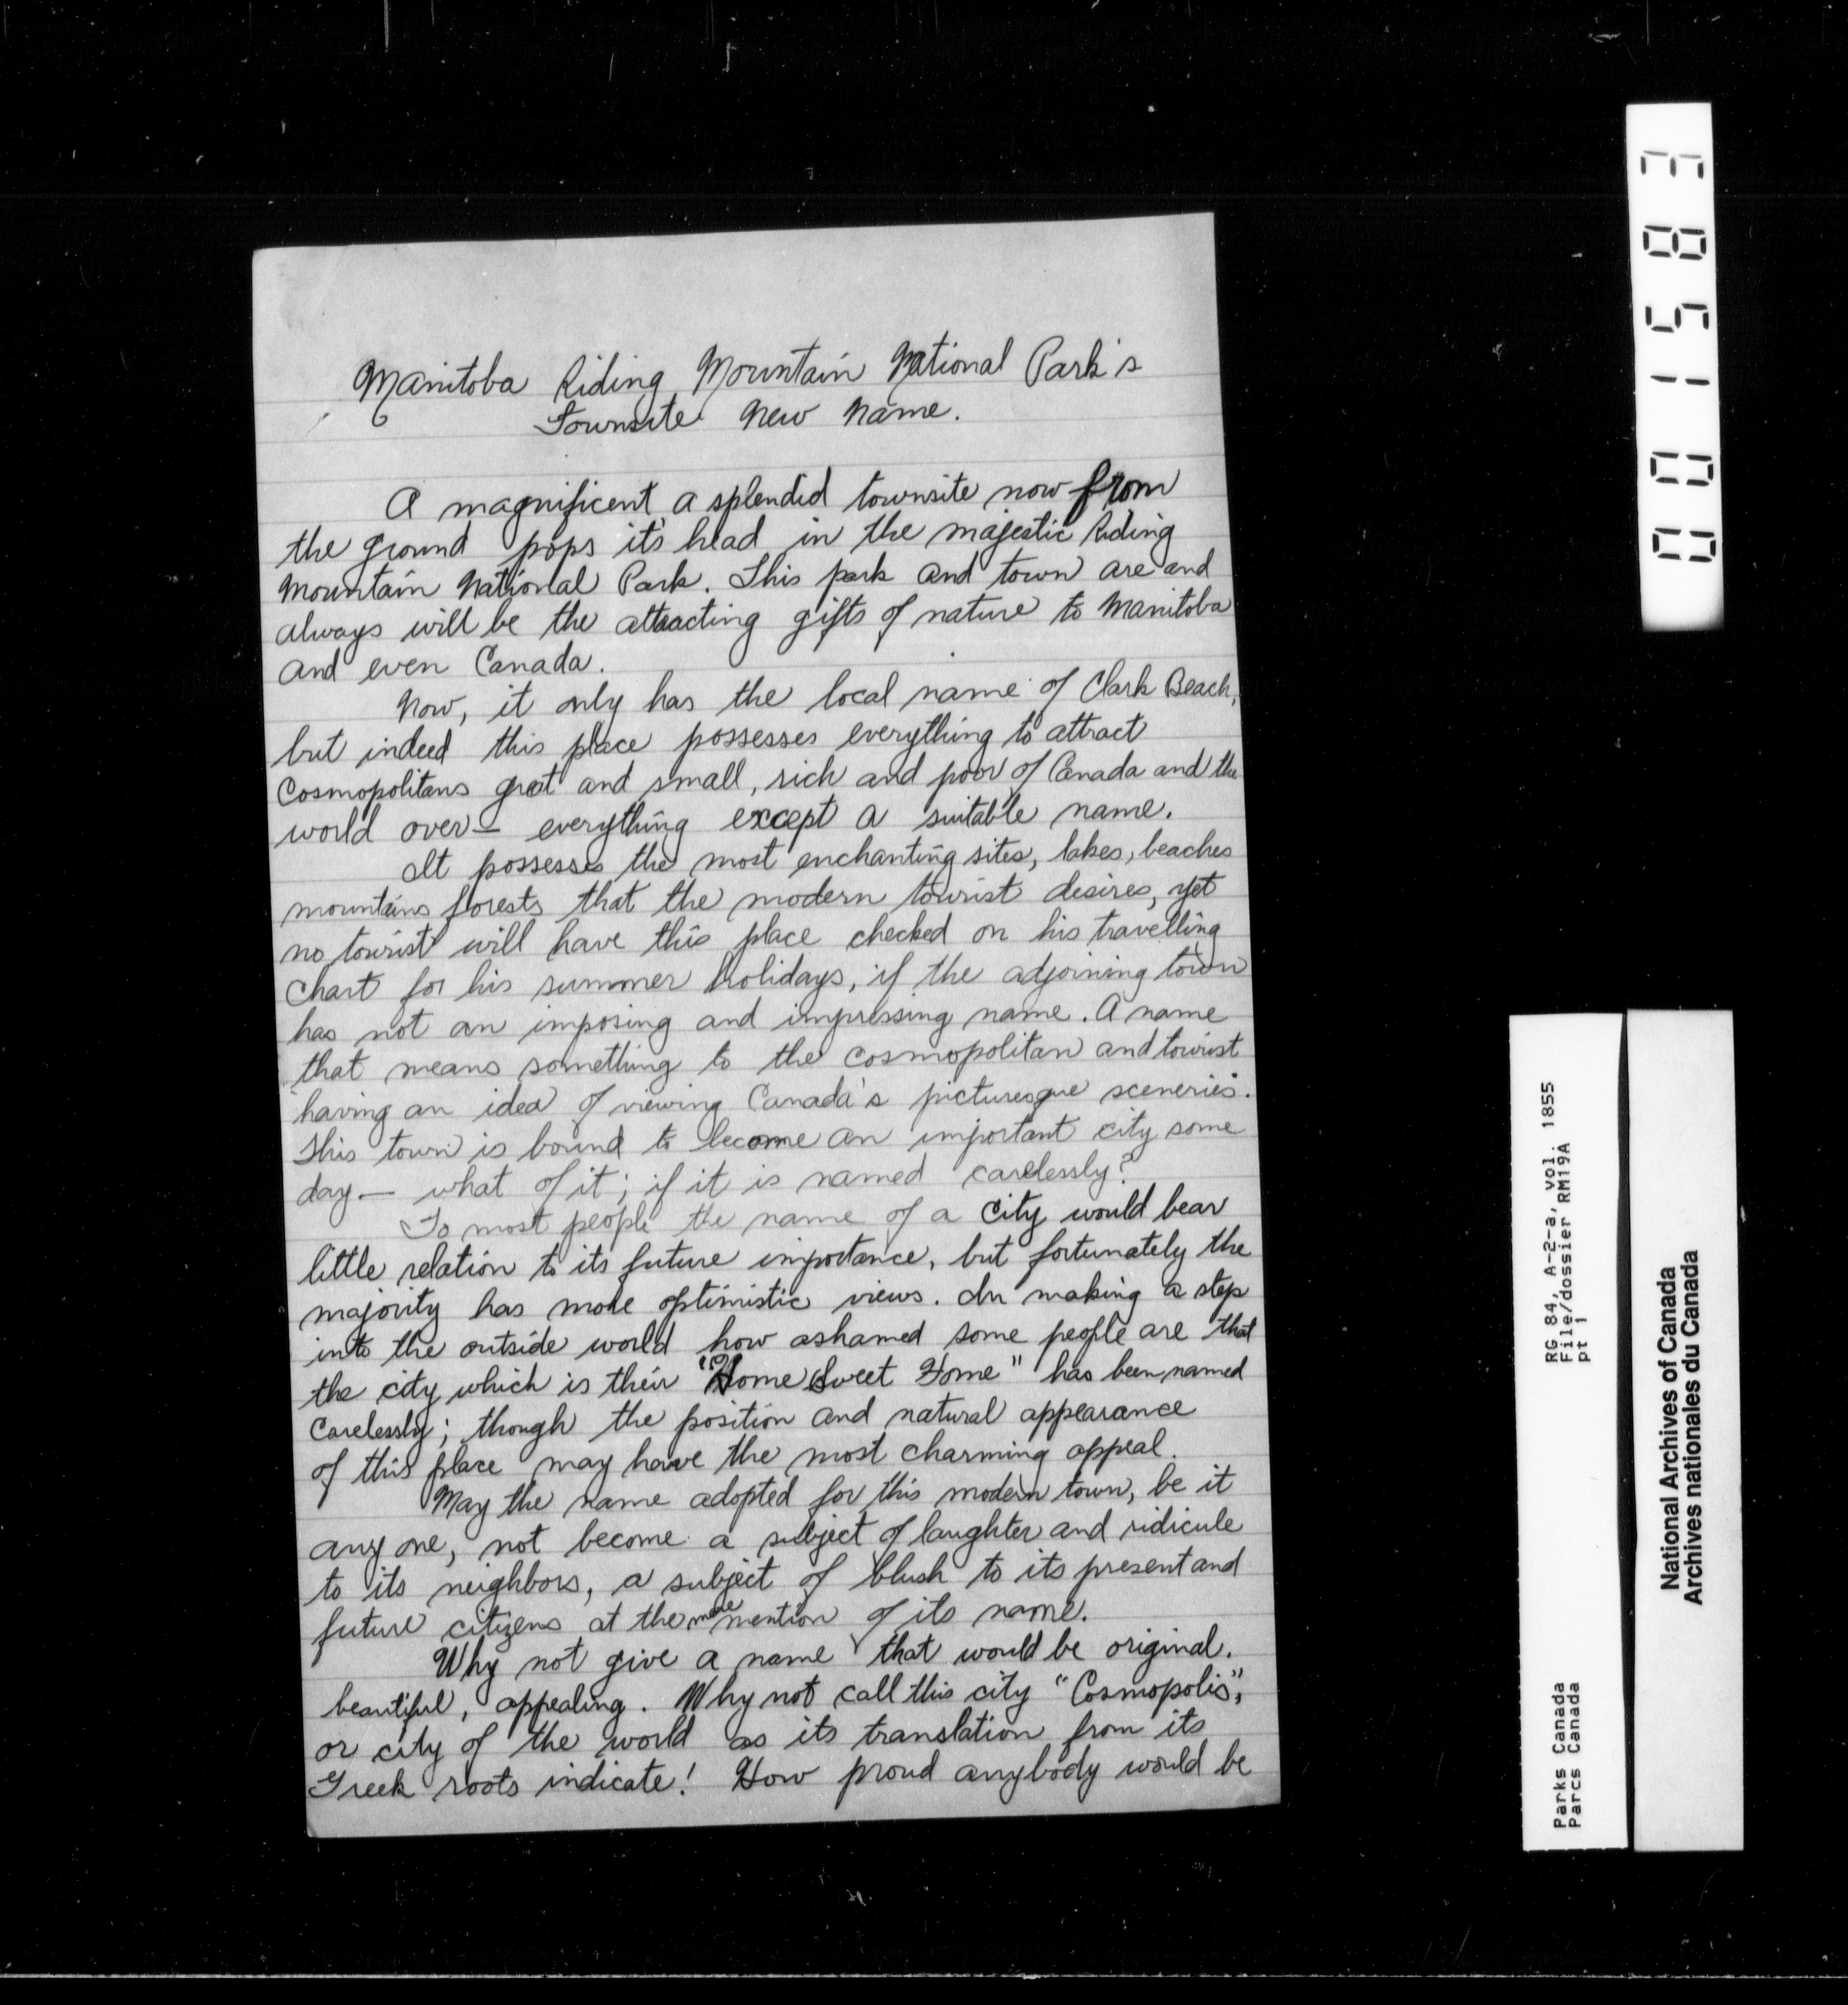 Manitoba Riding Mountain National Park's
Townsite New Name.
A magnificent a splendid townsite now from
the ground pops it's head in the majestic Riding
Mountain National Park. This park and town are and
always will be the attracting gifts of nature to Manitoba
and even Canada.
Now, it only has the local name of Clark Beach,
but indeed this place possesses everything to attract
Cosmopolitans great and small, rich and poor of Canada and the
world over — everything except a suitable name.
It possesses the most enchanting sites, lakes, beaches
mountains forests that the modern tourist desires, yet
no tourist will have this place checked on his travelling
chart for his summer holidays, if the adjoining town
has not an imposing and impressing name. A name
that means something to the cosmopolitan and tourist
having an idea of viewing Canada's picturesque sceneries.
This town is bound to become an important city some
day — what of it; if it is named carelessly?
To most people the name of a city would bear
little relation to its future importance, but fortunately the
majority has more optimistic views. In making a step
into the outside world how ashamed some people are that
the city which is their "Home Sweet Home" has been named
carelessly; though the position and natural appearance
of this place may have the most charming appeal.
May the name adopted for this modern town, be it
any one, not become a subject of laughter and ridicule
to its neighbors, a subject of blush to its present and
future citizens at the mere mention of its name.
Why not give a name that would be original.
beautiful, appealing. Why not call this city "Cosmopolis",
or city of the world as its translation from its
Greek roots indicate! How proud anybody would be
001583
RG 84, A-2-a, vol. 1855
File/dossier RM19A
pt 1
Parks Canada
Parcs Canada
National Archives of Canada
Archives nationales du Canada